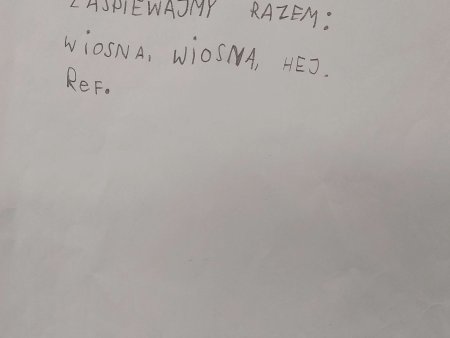 ZAŚPIEWAJMY RAZEM:
WiOSNA, WiOSNA, HEJ.
ReF.